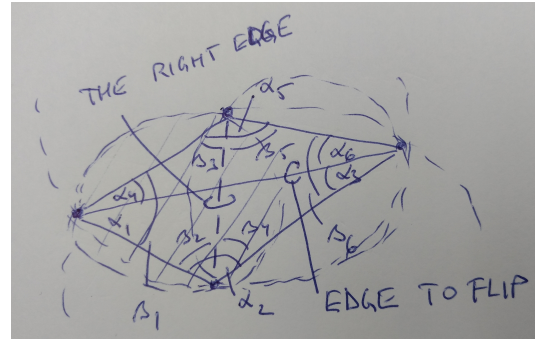 THE RIGHT EDGE
α5
β3
β5
α6
α4
α3
α1
β2
β4
β6
β1
α2
EDGE TO FLIP